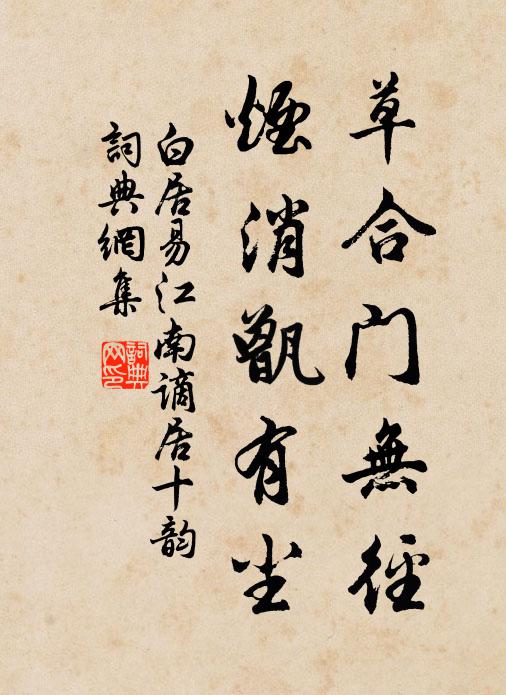 草合門無徑
煙消甑有尘
白居易江南谪居十韵
詞典網集
詞典
网印